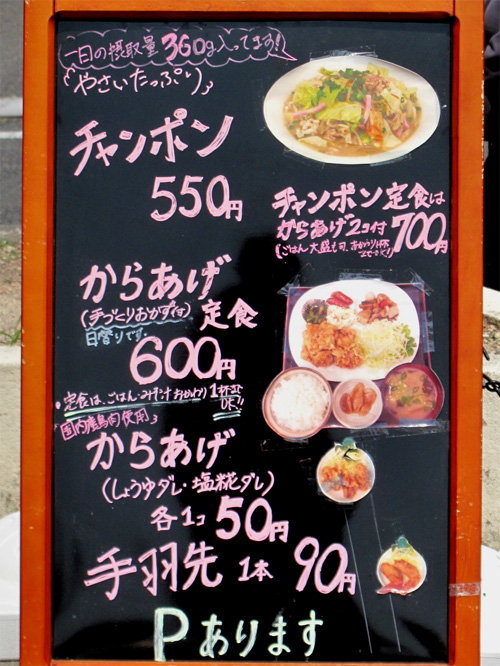 一日の摂取量360g入ってます!
やさいたっぷり
チャンポン
550円
チャンポン定食は
からあげ2コ付
700円
(ごはん大盛も可、おかわり1杯までOK!)
からあげ
(手づくりおかず付)
定食
日替りです。
600円
・定食は、ごはん・みそ汁おかわり1杯までOK!!
「国内産鳥肉使用」
からあげ
(しょうゆダレ・塩糀ダレ)
各1コ 50円
手羽先 1本 90円
Pあります